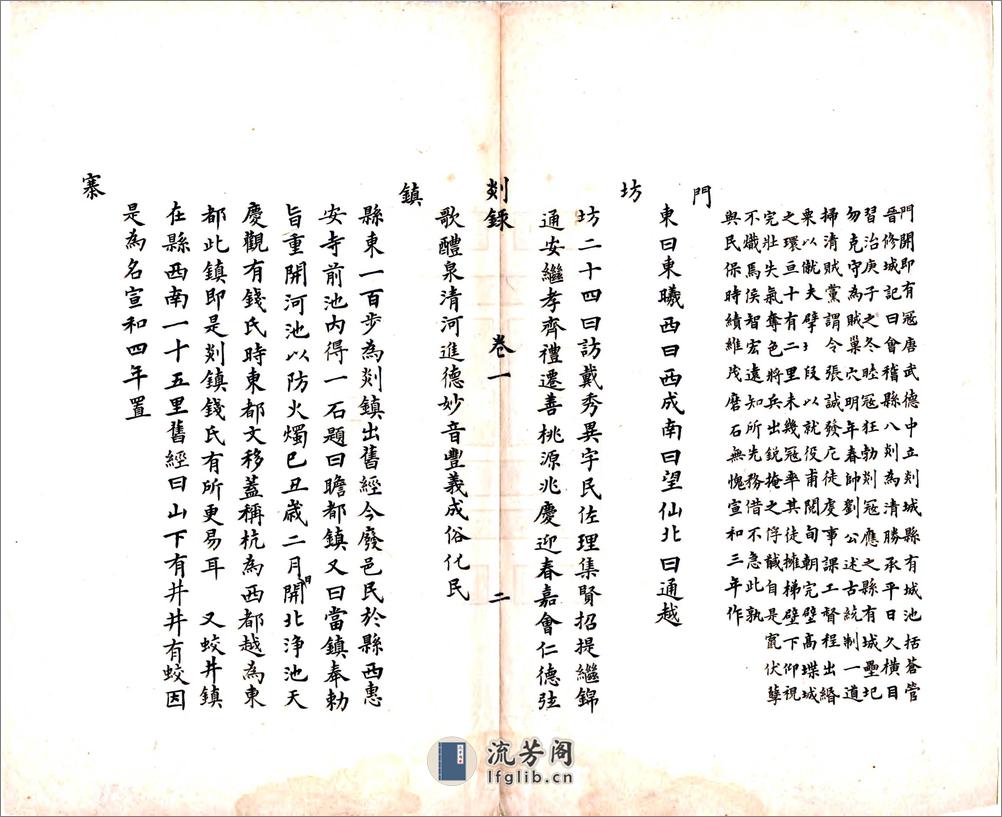 門開即有冠唐武德中立剡城縣有城池括蒼管
晉修城記曰會稽縣八剡為清勝承平日久橫目
習治庚子之冬睦冠狂勃剡冠應之縣有城壘圮
勿克守為賊巢穴明年春帥劉公述古統制一道
掃清賊黨謂令張誠發庀徒虞事課工督程出緡
粟以僦夫甓以段以就役甫閱旬朝完壁高堞城
之環亘十有二里未幾冠率其徒擁梯壁下仰視
完壯失氣奪色將兵出銳掩之俘馘自是竄伏孽
不熾焉侯智宏遠知所先務借不急此孰
與民保時績維茂磨石無愧宣和三年作
門
東曰東曦西曰西成南曰望仙北曰通越
坊
坊二十四曰訪戴秀異字民佐理集賢招提繼錦
通安繼孝齊禮遷善桃源兆慶迎春嘉會仁德弦
剡錄 卷一 二
歌醴泉清河進德妙音豐義成俗化民
鎮
縣東一百步為剡鎮出舊經今廢邑民於縣西惠
安寺前池內得一石題曰瞻都鎮又曰當鎮奉勅
旨重開河池以防火燭巳丑歳二月開北淨池天
慶觀有錢氏時東都文移蓋稱杭為西都越為東
都此鎮即是剡鎮錢氏有所更易耳 又蛟井鎮
在縣西南一十五里舊經曰山下有井井有蛟因
是為名宣和四年置
寨
流芳阁
lfglib.cn